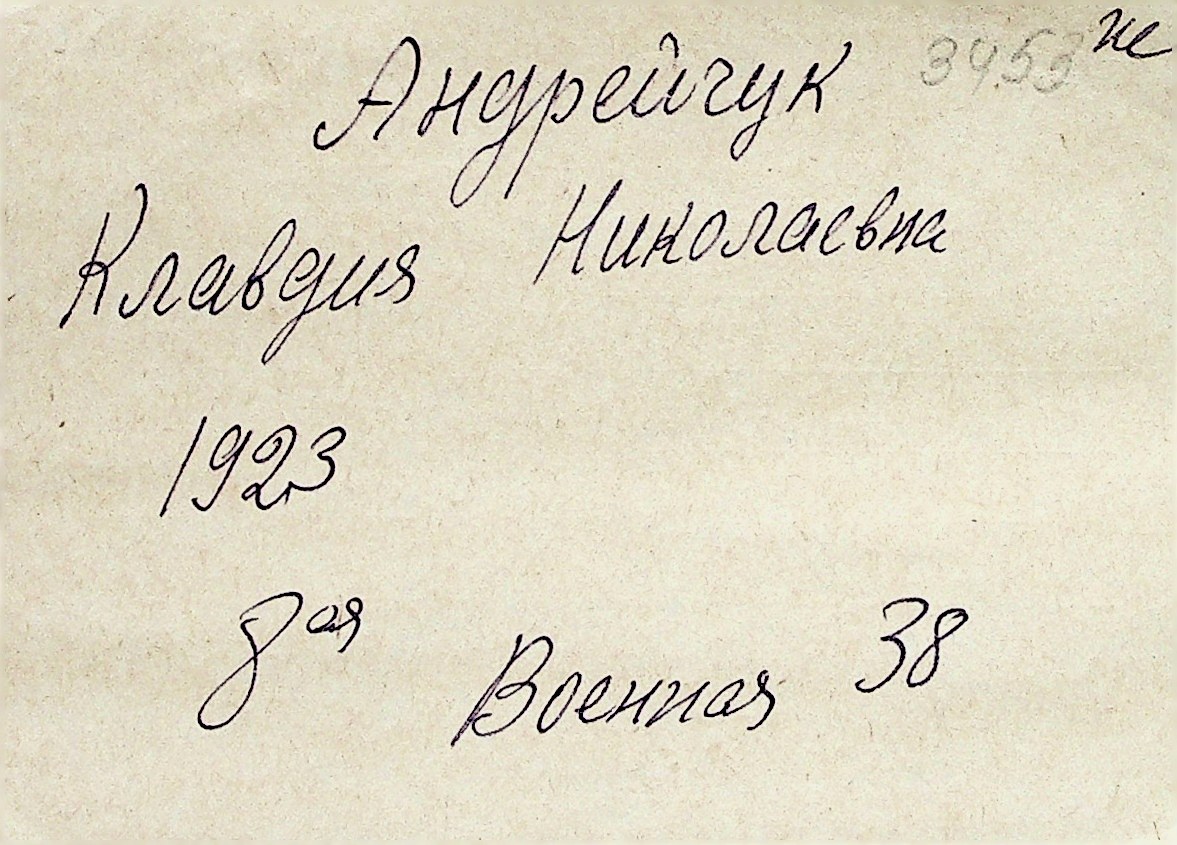 Андрейчук 3453 ж
Клавдия Николаевна
1923
8ая Военная 38